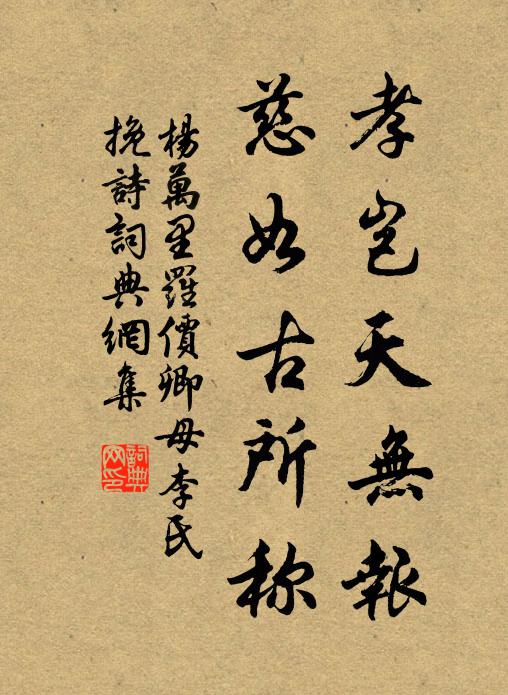 孝岂天無報
慈如古所称
楊萬里羅價卿母李氏
挽詩詞典網集
詞典網印